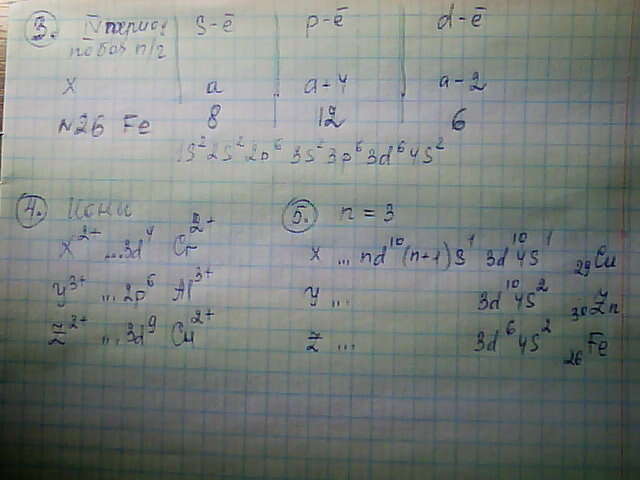 3. IV период s-ē p-ē d-ē
побоч п/г
X a a+4 a-2
N26 Fe 8 12 6
1S² 2S² 2p⁶ 3S² 3p⁶ 3d⁶ 4S²
4. Ионы
X²⁺ ...3d⁴ Cr²⁺
У³⁺ ...2p⁶ Al³⁺
Z²⁺ ...3d⁹ Cu²⁺
5. n = 3
X ... nd¹⁰(n+1)S¹ 3d¹⁰4S¹ ₂₉Cu
У ... 3d¹⁰4S² ₃₀Zn
Z ... 3d⁶4S² ₂₆Fe